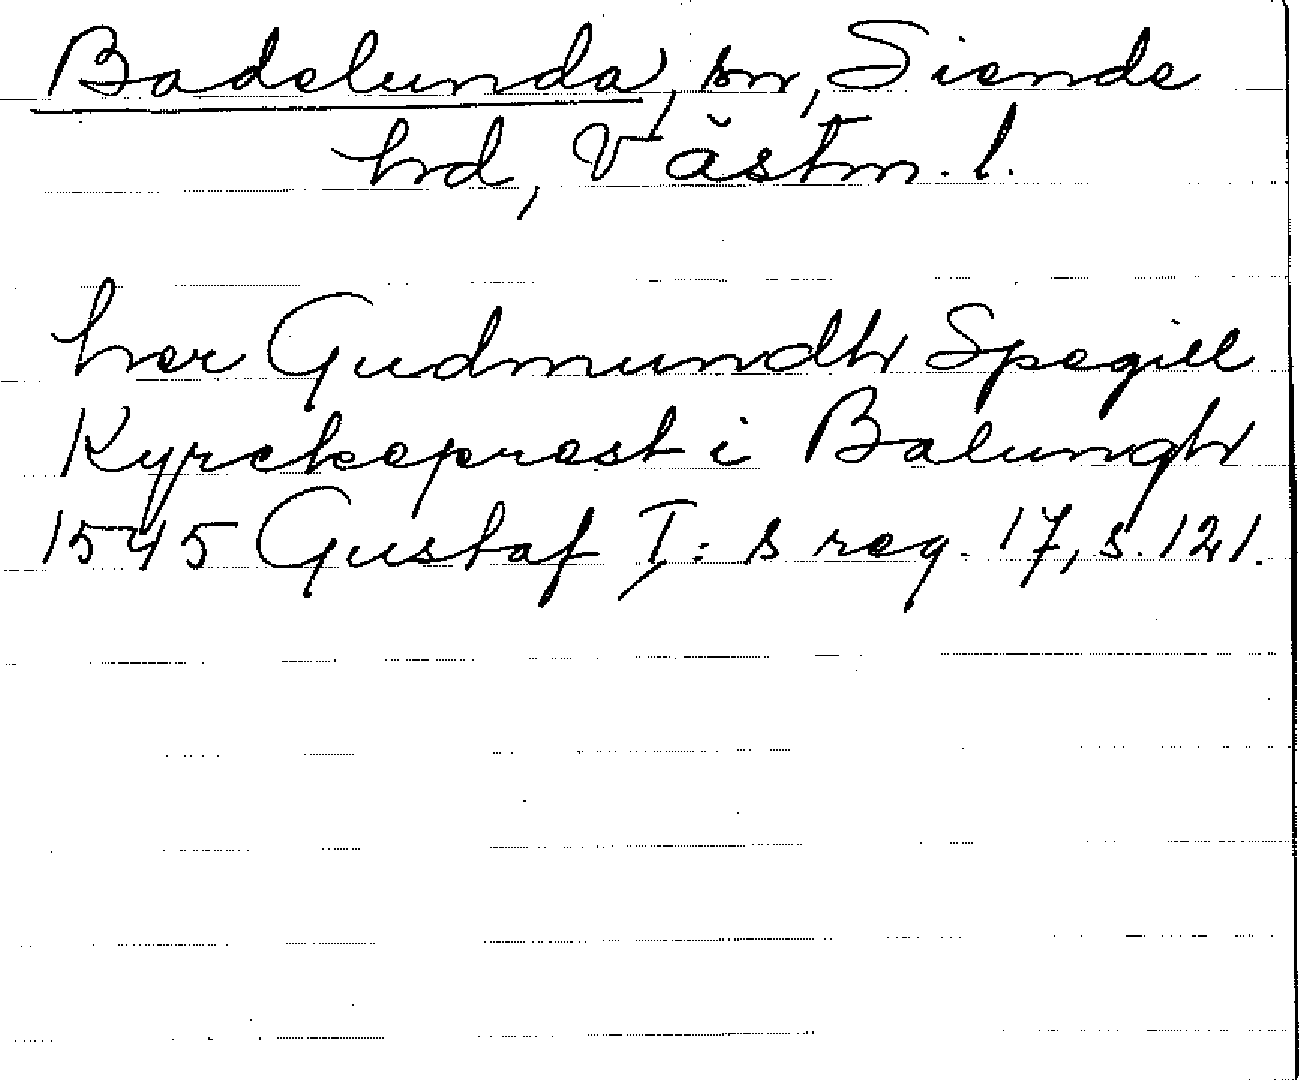 Badelunda, sn, Siende
hd, Västm. l.
her Gudmundh Spegill
Kyrckeprest i Balungh
1545 Gustaf I:s reg. 17, s. 121.